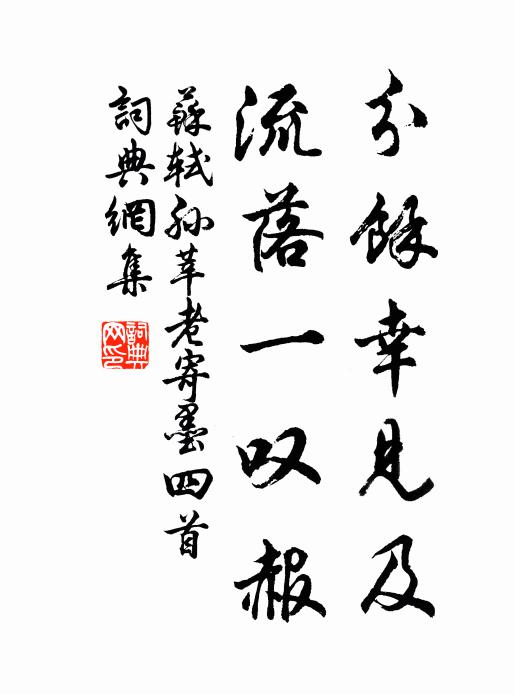 分餘幸見及
流落一叹赧
蘇軾孫莘老寄墨四首
詞典網集
詞典網印